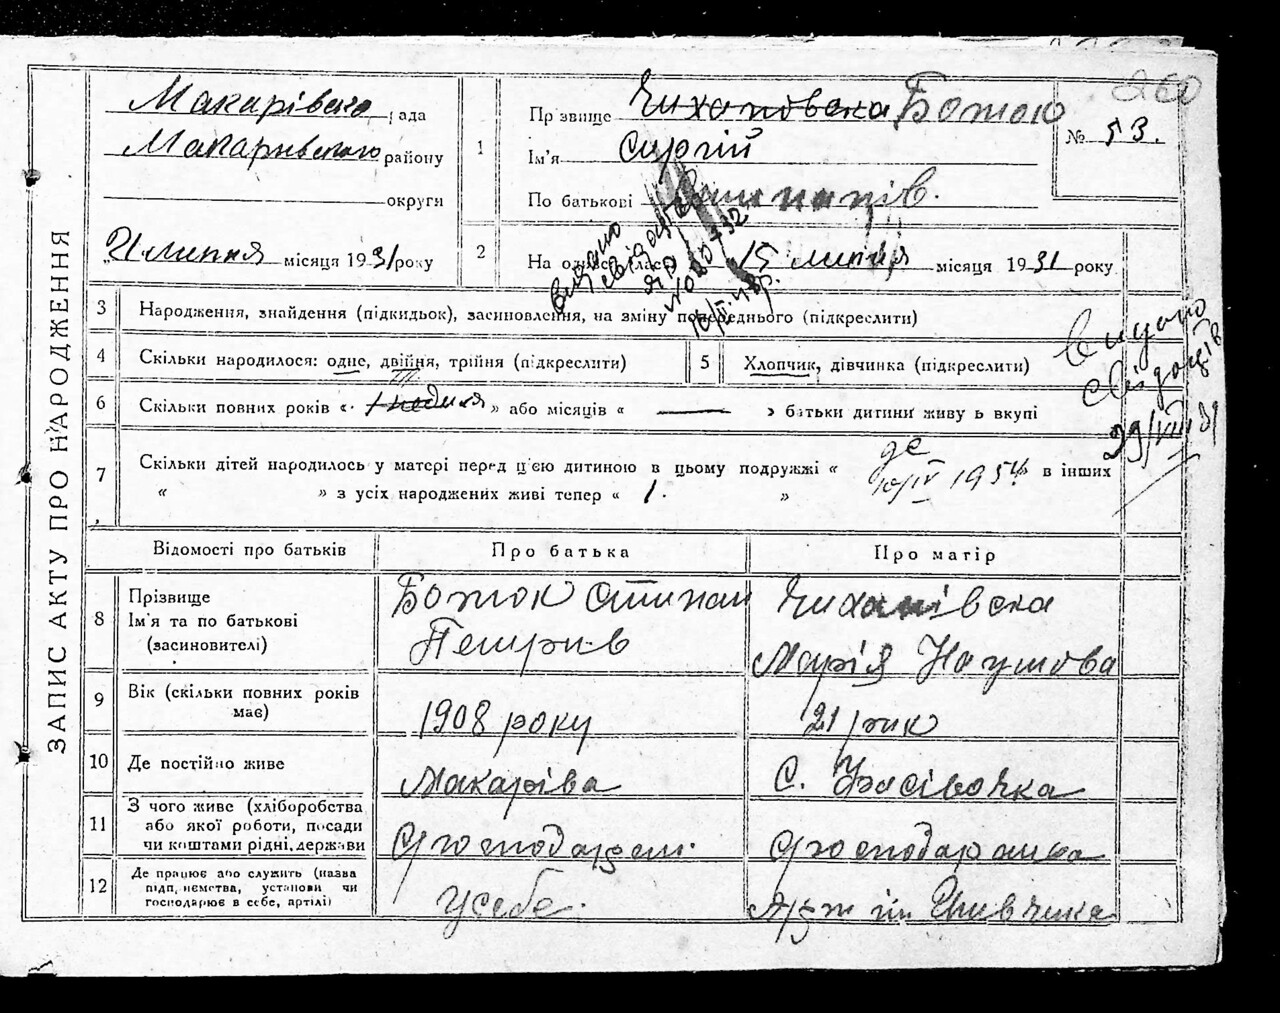 260
ЗАПИС АКТУ ПРО НАРОДЖЕННЯ
Макарівська рада
Макарівського району
округи
21 липня місяця 1931 року
1 Прізвище Чиханівська Божок
№ 53.
Ім'я Сиргій
По батькові
2 На 15 липня місяця 1931 року
видано
10/IV
3 Народження, знайдення (підкидьок), засиновлення, на зміну попереднього (підкреслити)
4 Скільки народилося: одне, двійня, трійня (підкреслити)
5 Хлопчик, дівчинка (підкреслити)
видано
свідоцтв
29/VIII 31
6 Скільки повних років « » або місяців « — » батьки дитини живуть вкупі
7 Скільки дітей народилось у матері перед цією дитиною в цьому подружжі « в інших
10/IV 1954
« » з усіх народжених живі тепер « 1. »
Відомості про батьків Про батька Про матір
8 Прізвище
Ім'я та по батькові
(засиновителі)
Божок Стипан
Петрів
Чиханівська
Марія Наумова
9 Вік (скільки повних років має)
1908 року
21 рик
10 Де постійно живе
Макарів
с.
11 З чого живе (хліборобства
або якої роботи, посади
чи коштами рідні, держави
Господарем.
Господарника
12 Де працює або служить (назва
підприємства, установи чи
господарює в себе, артілі)
у себе.